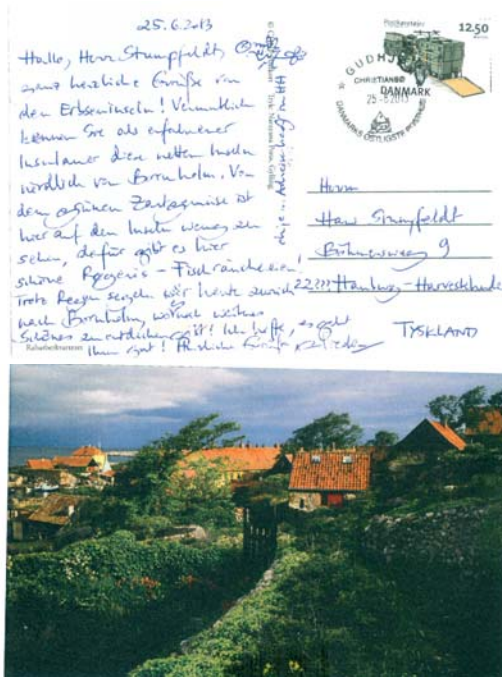 25.6.2013
Hallo, Herr Stumpfeldt,
ganz herzliche Grüße von
den Erbseninseln! Vermutlich
kennen Sie als erfahrener
Insulaner diese netten Inseln
nördlich von Bornholm. Von
dem grünen Zartgemüse ist
hier auf den Inseln wenig zu
sehen, dafür gibt es hier
schöne Røgeris - Fischräuchereien!
Trotz Regen segeln wir heute zurück
nach Bornholm, wo noch weiteres
Schönes zu entdecken ist! Ich hoffe, es geht
Ihnen gut! Herzliche Grüße
Rabarberkvarteret
Tryk: Narayana Press, Gylling
Postkøretøjer
12.50
DANMARK
GUDHJEM
CHRISTIANSØ
25-6 2013
DANMARKS ØSTLIGSTE POSTHUS
Herrn
Hans Stumpfeldt
Böhmersweg 9
22??? Hamburg-Harvestehude
TYSKLAND